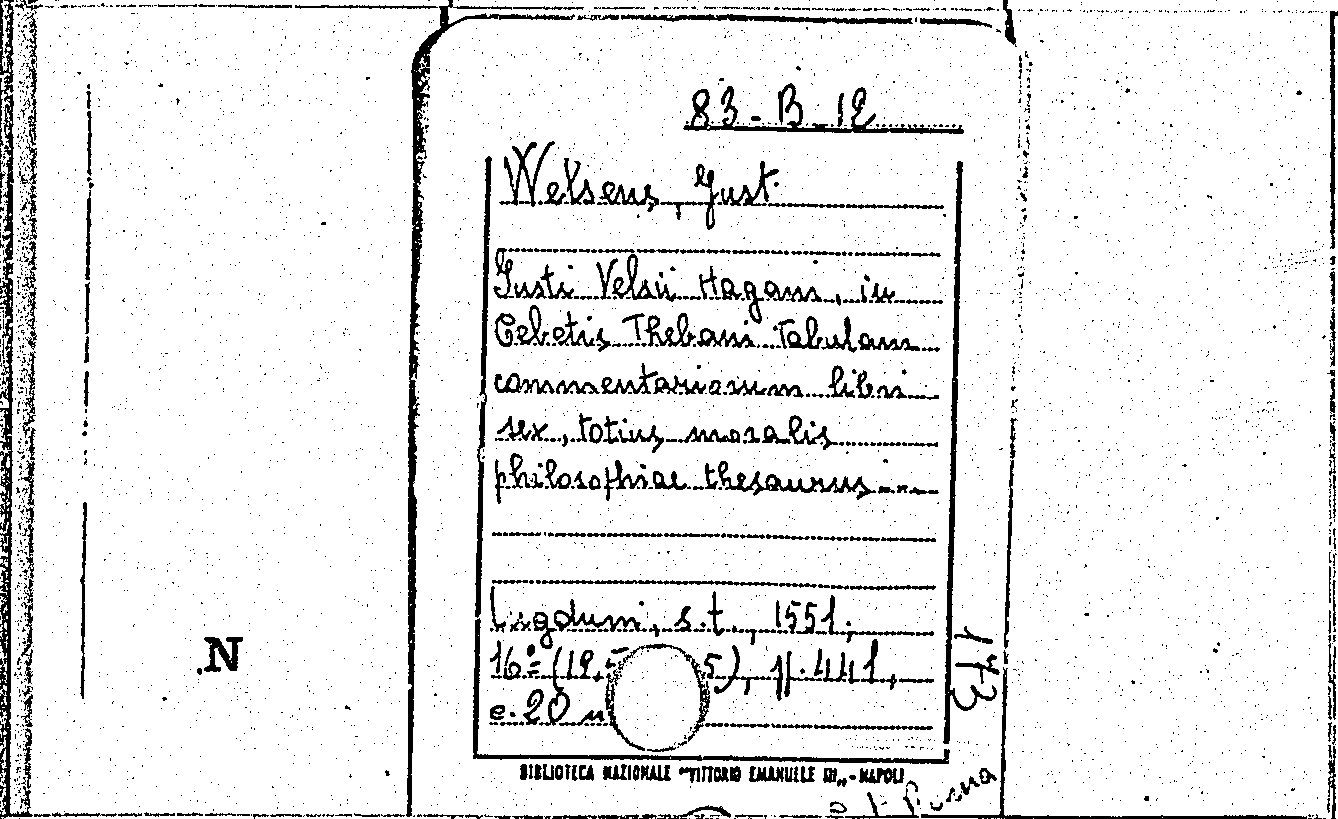 83-B-12
Welsens, Just.
Justi Velsii Hagani, in
Cebetis Thebani Tabulam
commentariorum libri
sex, totius moralis
philosophiae thesaurus....
Lugduni, s.t., 1551;
16º (12,5 5), pp. 441,
c. 20 n
173
.N
BIBLIOTECA NAZIONALE "VITTORIO EMANUELE III" - NAPOLI